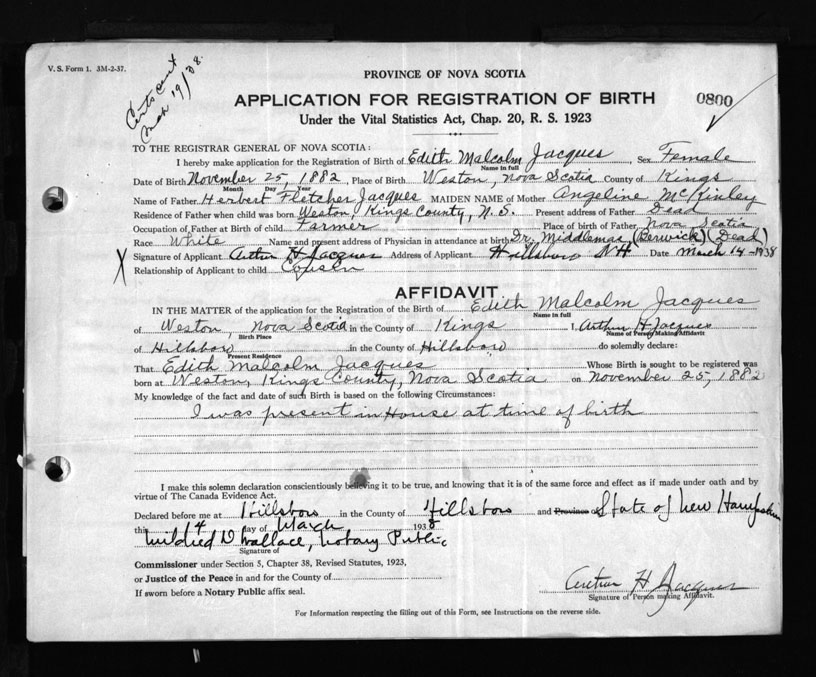 V. S. Form 1. 3M-2-37.
Mar 19/38.
PROVINCE OF NOVA SCOTIA
APPLICATION FOR REGISTRATION OF BIRTH
0800
Under the Vital Statistics Act, Chap. 20, R. S. 1923
TO THE REGISTRAR GENERAL OF NOVA SCOTIA:
I hereby make application for the Registration of Birth of Edith Malcolm Jacques Sex Female
Name in full
Date of Birth November 25, 1882, Place of Birth Weston, Nova Scotia County of Kings
Month Day Year
Name of Father Herbert Fletcher Jacques MAIDEN NAME of Mother Angeline McKinley
Residence of Father when child was born Weston, Kings County, N. S. Present address of Father Dead
Occupation of Father at Birth of child Farmer Place of birth of Father Nova Scotia
Race White Name and present address of Physician in attendance at birth Dr. Middlemas (Berwick) (Dead)
X Signature of Applicant Arthur H Jacques Address of Applicant Hillsboro NH Date March 14-1938
Relationship of Applicant to child Cousin
AFFIDAVIT
IN THE MATTER of the application for the Registration of the Birth of Edith Malcolm Jacques
Name in full
of Weston, Nova Scotia in the County of Kings I, Arthur H Jacques
Birth Place Name of Person Making Affidavit
of Hillsboro in the County of Hillsboro do solemnly declare:
Present Residence
That Edith Malcolm Jacques Whose Birth is sought to be registered was
born at Weston, Kings County, Nova Scotia on November 25, 1882
My knowledge of the fact and date of such Birth is based on the following Circumstances:
I was present in House at time of birth
I make this solemn declaration conscientiously believing it to be true, and knowing that it is of the same force and effect as if made under oath and by
virtue of The Canada Evidence Act.
Declared before me at Hillsboro in the County of Hillsboro and Province of State of New Hampshire
this 14 day of March 1938
Mildred D Wallace, Notary Public
Signature of
Commissioner under Section 5, Chapter 38, Revised Statutes, 1923,
or Justice of the Peace in and for the County of
If sworn before a Notary Public affix seal.
Arthur H Jacques
Signature of Person making Affidavit.
For Information respecting the filling out of this Form, see Instructions on the reverse side.